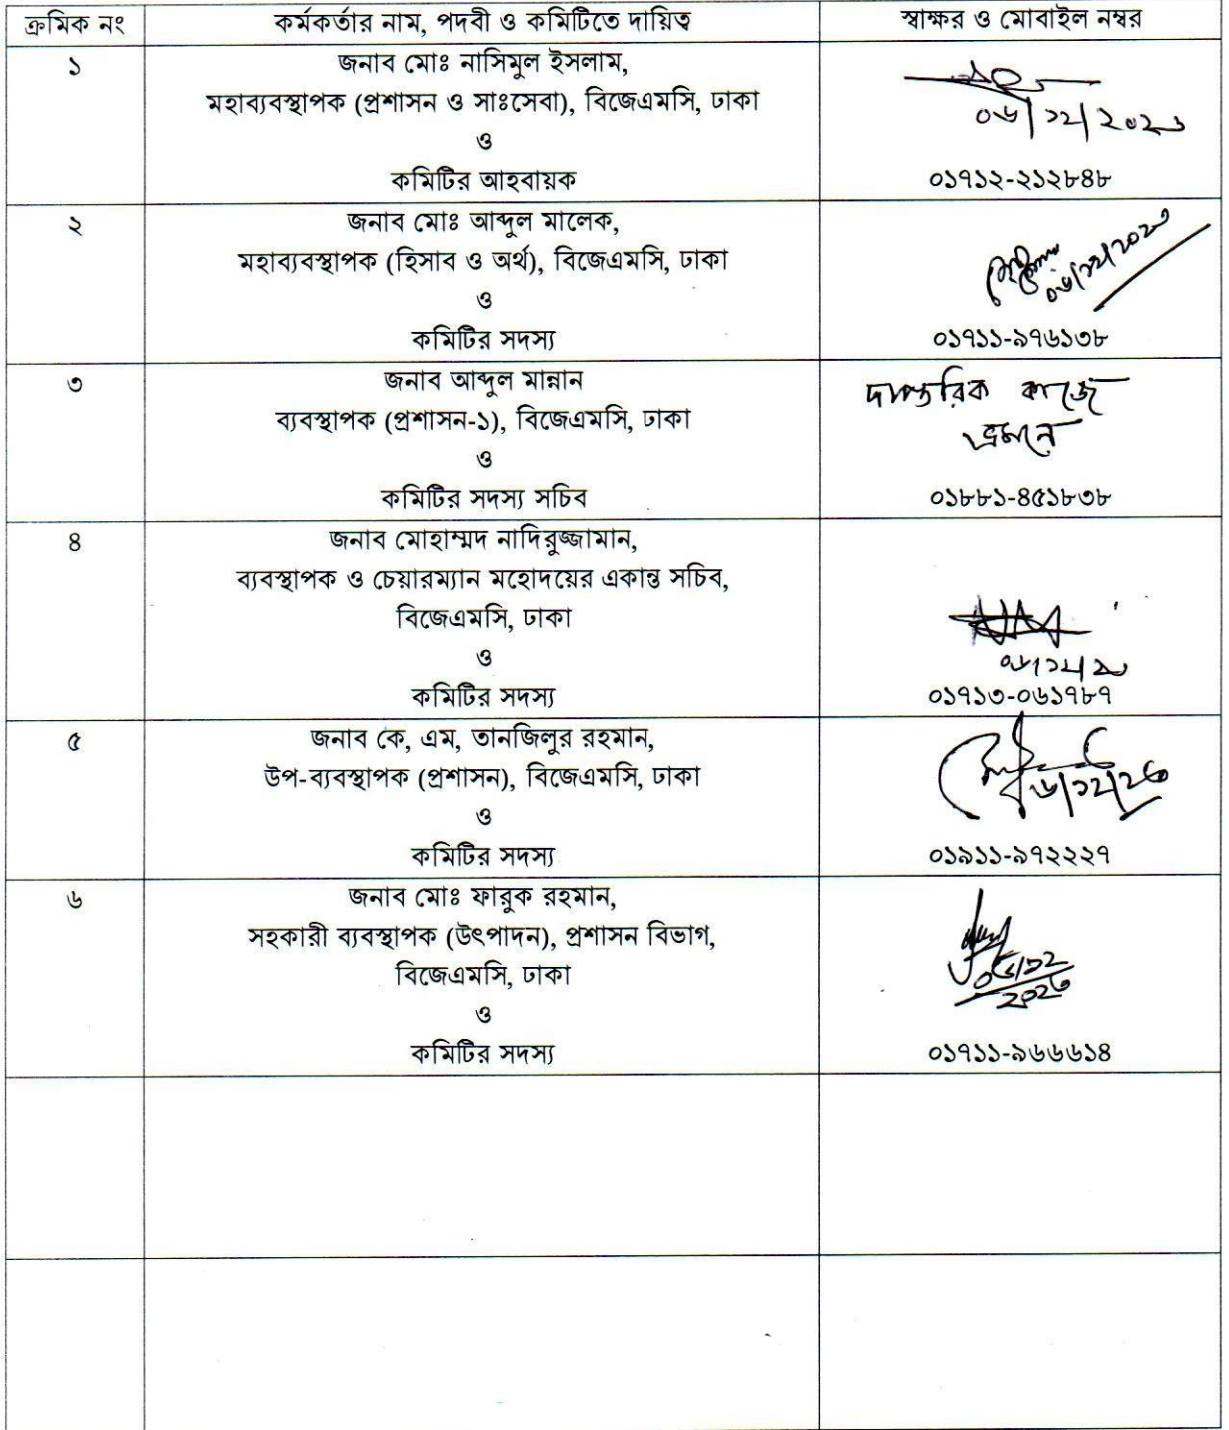 ক্রমিক নং কর্মকর্তার নাম, পদবী ও কমিটিতে দায়িত্ব স্বাক্ষর ও মোবাইল নম্বর
১ জনাব মোঃ নাসিমুল ইসলাম,
মহাব্যবস্থাপক (প্রশাসন ও সাঃসেবা), বিজেএমসি, ঢাকা
০৬/১২/২০২৩
ও
কমিটির আহবায়ক ০১৭১২-২১২৮৪৮
২ জনাব মোঃ আব্দুল মালেক,
মহাব্যবস্থাপক (হিসাব ও অর্থ), বিজেএমসি, ঢাকা
০৬/১২/২০২৩
ও
কমিটির সদস্য ০১৭১১-৯৭৬১৩৮
৩ জনাব আব্দুল মান্নান দাপ্তরিক কাজে
ব্যবস্থাপক (প্রশাসন-১), বিজেএমসি, ঢাকা ভ্রমনে
ও
কমিটির সদস্য সচিব ০১৮৮১-৪৫১৮৩৮
৪ জনাব মোহাম্মদ নাদিরুজ্জামান,
ব্যবস্থাপক ও চেয়ারম্যান মহোদয়ের একান্ত সচিব,
বিজেএমসি, ঢাকা
ও
কমিটির সদস্য ০১৭১৩-০৬১৭৮৭
৫ জনাব কে, এম, তানজিলুর রহমান,
উপ-ব্যবস্থাপক (প্রশাসন), বিজেএমসি, ঢাকা ৬/১২/২৩
ও
কমিটির সদস্য ০১৯১১-৯৭২২২৭
৬ জনাব মোঃ ফারুক রহমান,
সহকারী ব্যবস্থাপক (উৎপাদন), প্রশাসন বিভাগ,
বিজেএমসি, ঢাকা
২০২৩
ও
কমিটির সদস্য ০১৭১১-৯৬৬৬১৪